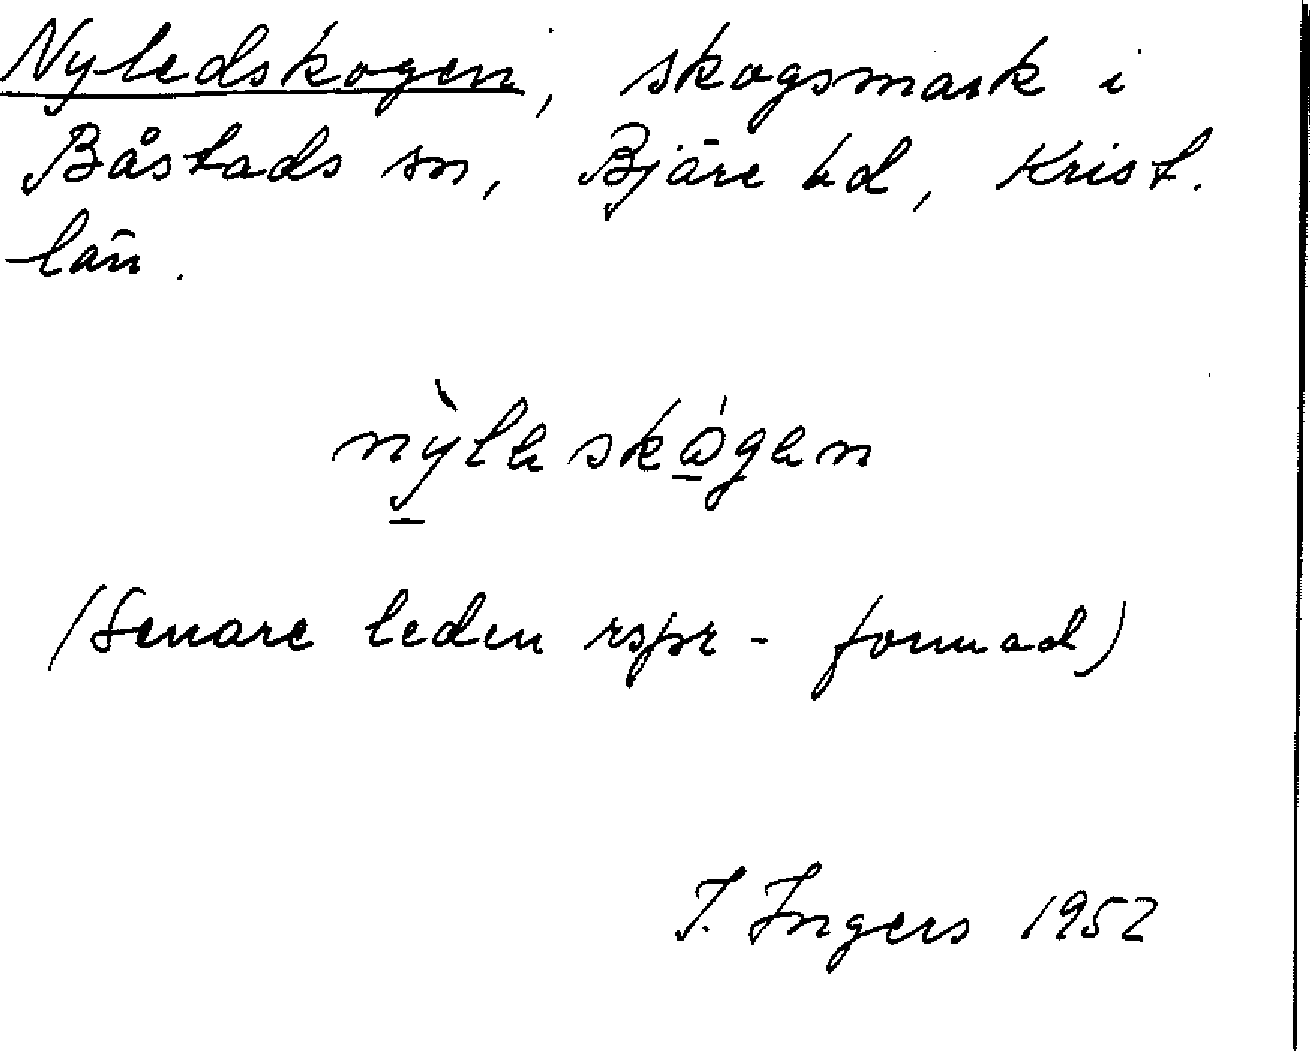 Nyledskogen, skogsmark i
Båstads sn, Bjäre hd, Krist.
län.
nỳleskógen
(Senare leden rspr-formad)
I. Ingers 1952